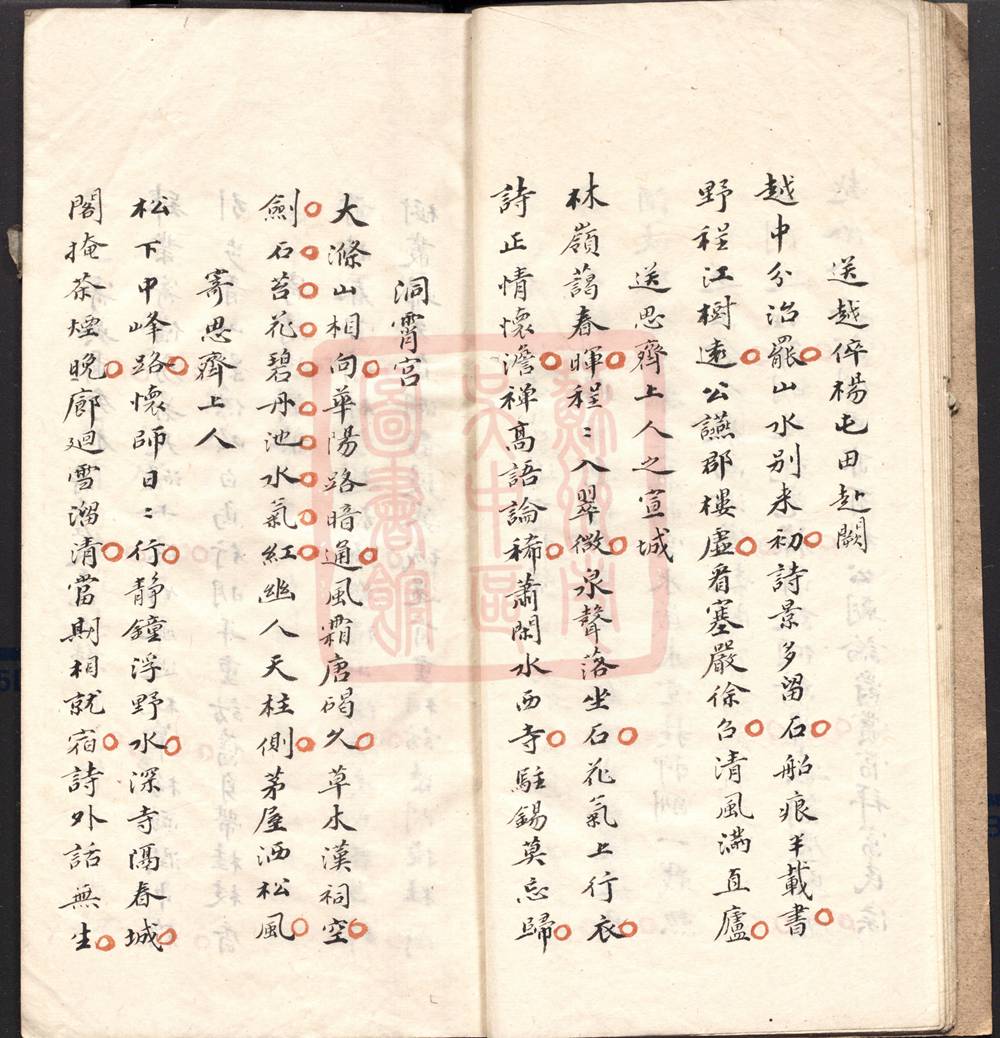 送越倅楊屯田赴闕
越中分治罷山水别来初詩景多留石船痕半載書
野程江樹遠公讌郡樓虛看塞嚴徐召清風滿直廬
送思齊上人之宣城
林嶺藹春暉程〻入翠微泉聲落坐石花氣上行衣
詩正情懷澹禅高語論稀蕭閑水西寺駐錫莫忘歸
洞霄宮
大滌山相向華陽路暗通風霜唐碣久草木漢祠空
劍石苔花碧丹池水氣紅幽人天柱側茅屋洒松風
寄思齊上人
松下中峰路懷師日〻行静鐘浮野水深寺隔春城
閣掩茶煙晚廊迴雪溜清當期相就宿詩外話無生
蘇州市吳中區圖書館